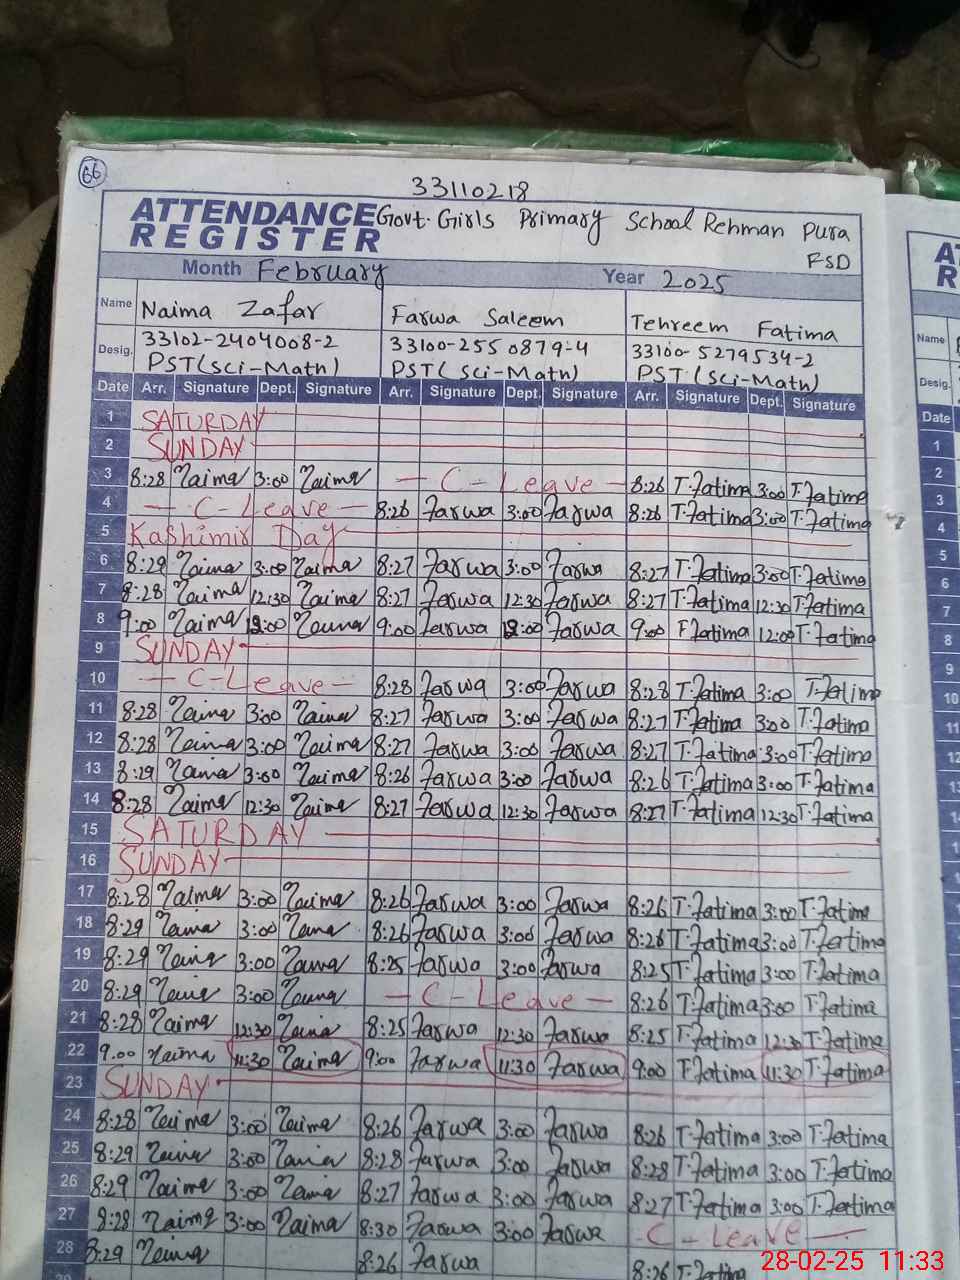 66
33110218
ATTENDANCE REGISTER Govt. Girls Primary School Rehman Pura FSD
Month February Year 2025
Name Naima Zafar Farwa Saleem Tehreem Fatima
Desig. 33102-2404008-2 33100-2550879-4 33100-5279534-2
PST(Sci-Math) PST(Sci-Math) PST(Sci-Math)
Date Arr. Signature Dept. Signature Arr. Signature Dept. Signature Arr. Signature Dept. Signature
1 SATURDAY
2 SUNDAY
3 8:28 Naima 3:00 Naima — C-Leave — 8:26 T.Fatima 3:00 T.Fatima
4 — C-Leave — 8:26 Farwa 3:00 Farwa 8:26 T.Fatima 3:00 T.Fatima
5 Kashimir Day
6 8:29 Naima 3:00 Naima 8:27 Farwa 3:00 Farwa 8:27 T.Fatima 3:00 T.Fatima
7 8:28 Naima 12:30 Naima 8:27 Farwa 12:30 Farwa 8:27 T.Fatima 12:30 T.Fatima
8 9:00 Naima 12:00 Naima 9:00 Farwa 12:00 Farwa 9:00 T.Fatima 12:00 T.Fatima
9 SUNDAY
10 — C-Leave — 8:28 Farwa 3:00 Farwa 8:28 T.Fatima 3:00 T.Fatima
11 8:28 Naima 3:00 Naima 8:27 Farwa 3:00 Farwa 8:27 T.Fatima 3:00 T.Fatima
12 8:28 Naima 3:00 Naima 8:27 Farwa 3:00 Farwa 8:27 T.Fatima 3:00 T.Fatima
13 8:29 Naima 3:00 Naima 8:26 Farwa 3:00 Farwa 8:26 T.Fatima 3:00 T.Fatima
14 8:28 Naima 12:30 Naima 8:27 Farwa 12:30 Farwa 8:27 T.Fatima 12:30 T.Fatima
15 SATURDAY
16 SUNDAY
17 8:28 Naima 3:00 Naima 8:26 Farwa 3:00 Farwa 8:26 T.Fatima 3:00 T.Fatima
18 8:29 Naima 3:00 Naima 8:26 Farwa 3:00 Farwa 8:26 T.Fatima 3:00 T.Fatima
19 8:29 Naima 3:00 Naima 8:25 Farwa 3:00 Farwa 8:25 T.Fatima 3:00 T.Fatima
20 8:29 Naima 3:00 Naima — C-Leave — 8:26 T.Fatima 3:00 T.Fatima
21 8:28 Naima 12:30 Naima 8:25 Farwa 12:30 Farwa 8:25 T.Fatima 12:30 T.Fatima
22 9.00 Naima 11:30 Naima 9:00 Farwa 11:30 Farwa 9:00 T.Fatima 11:30 T.Fatima
23 SUNDAY
24 8:28 Naima 3:00 Naima 8:26 Farwa 3:00 Farwa 8:26 T.Fatima 3:00 T.Fatima
25 8:29 Naima 3:00 Naima 8:28 Farwa 3:00 Farwa 8:28 T.Fatima 3:00 T.Fatima
26 8:29 Naima 3:00 Naima 8:27 Farwa 3:00 Farwa 8:27 T.Fatima 3:00 T.Fatima
27 8:28 Naima 3:00 Naima 8:30 Farwa 3:00 Farwa C-Leave —
28 8:29 Naima 8:26 Farwa 8:26 T.Fatima
28-02-25 11:33
Name
Desig.
Date
1
2
3
4
5
6
7
8
9
10
11
12